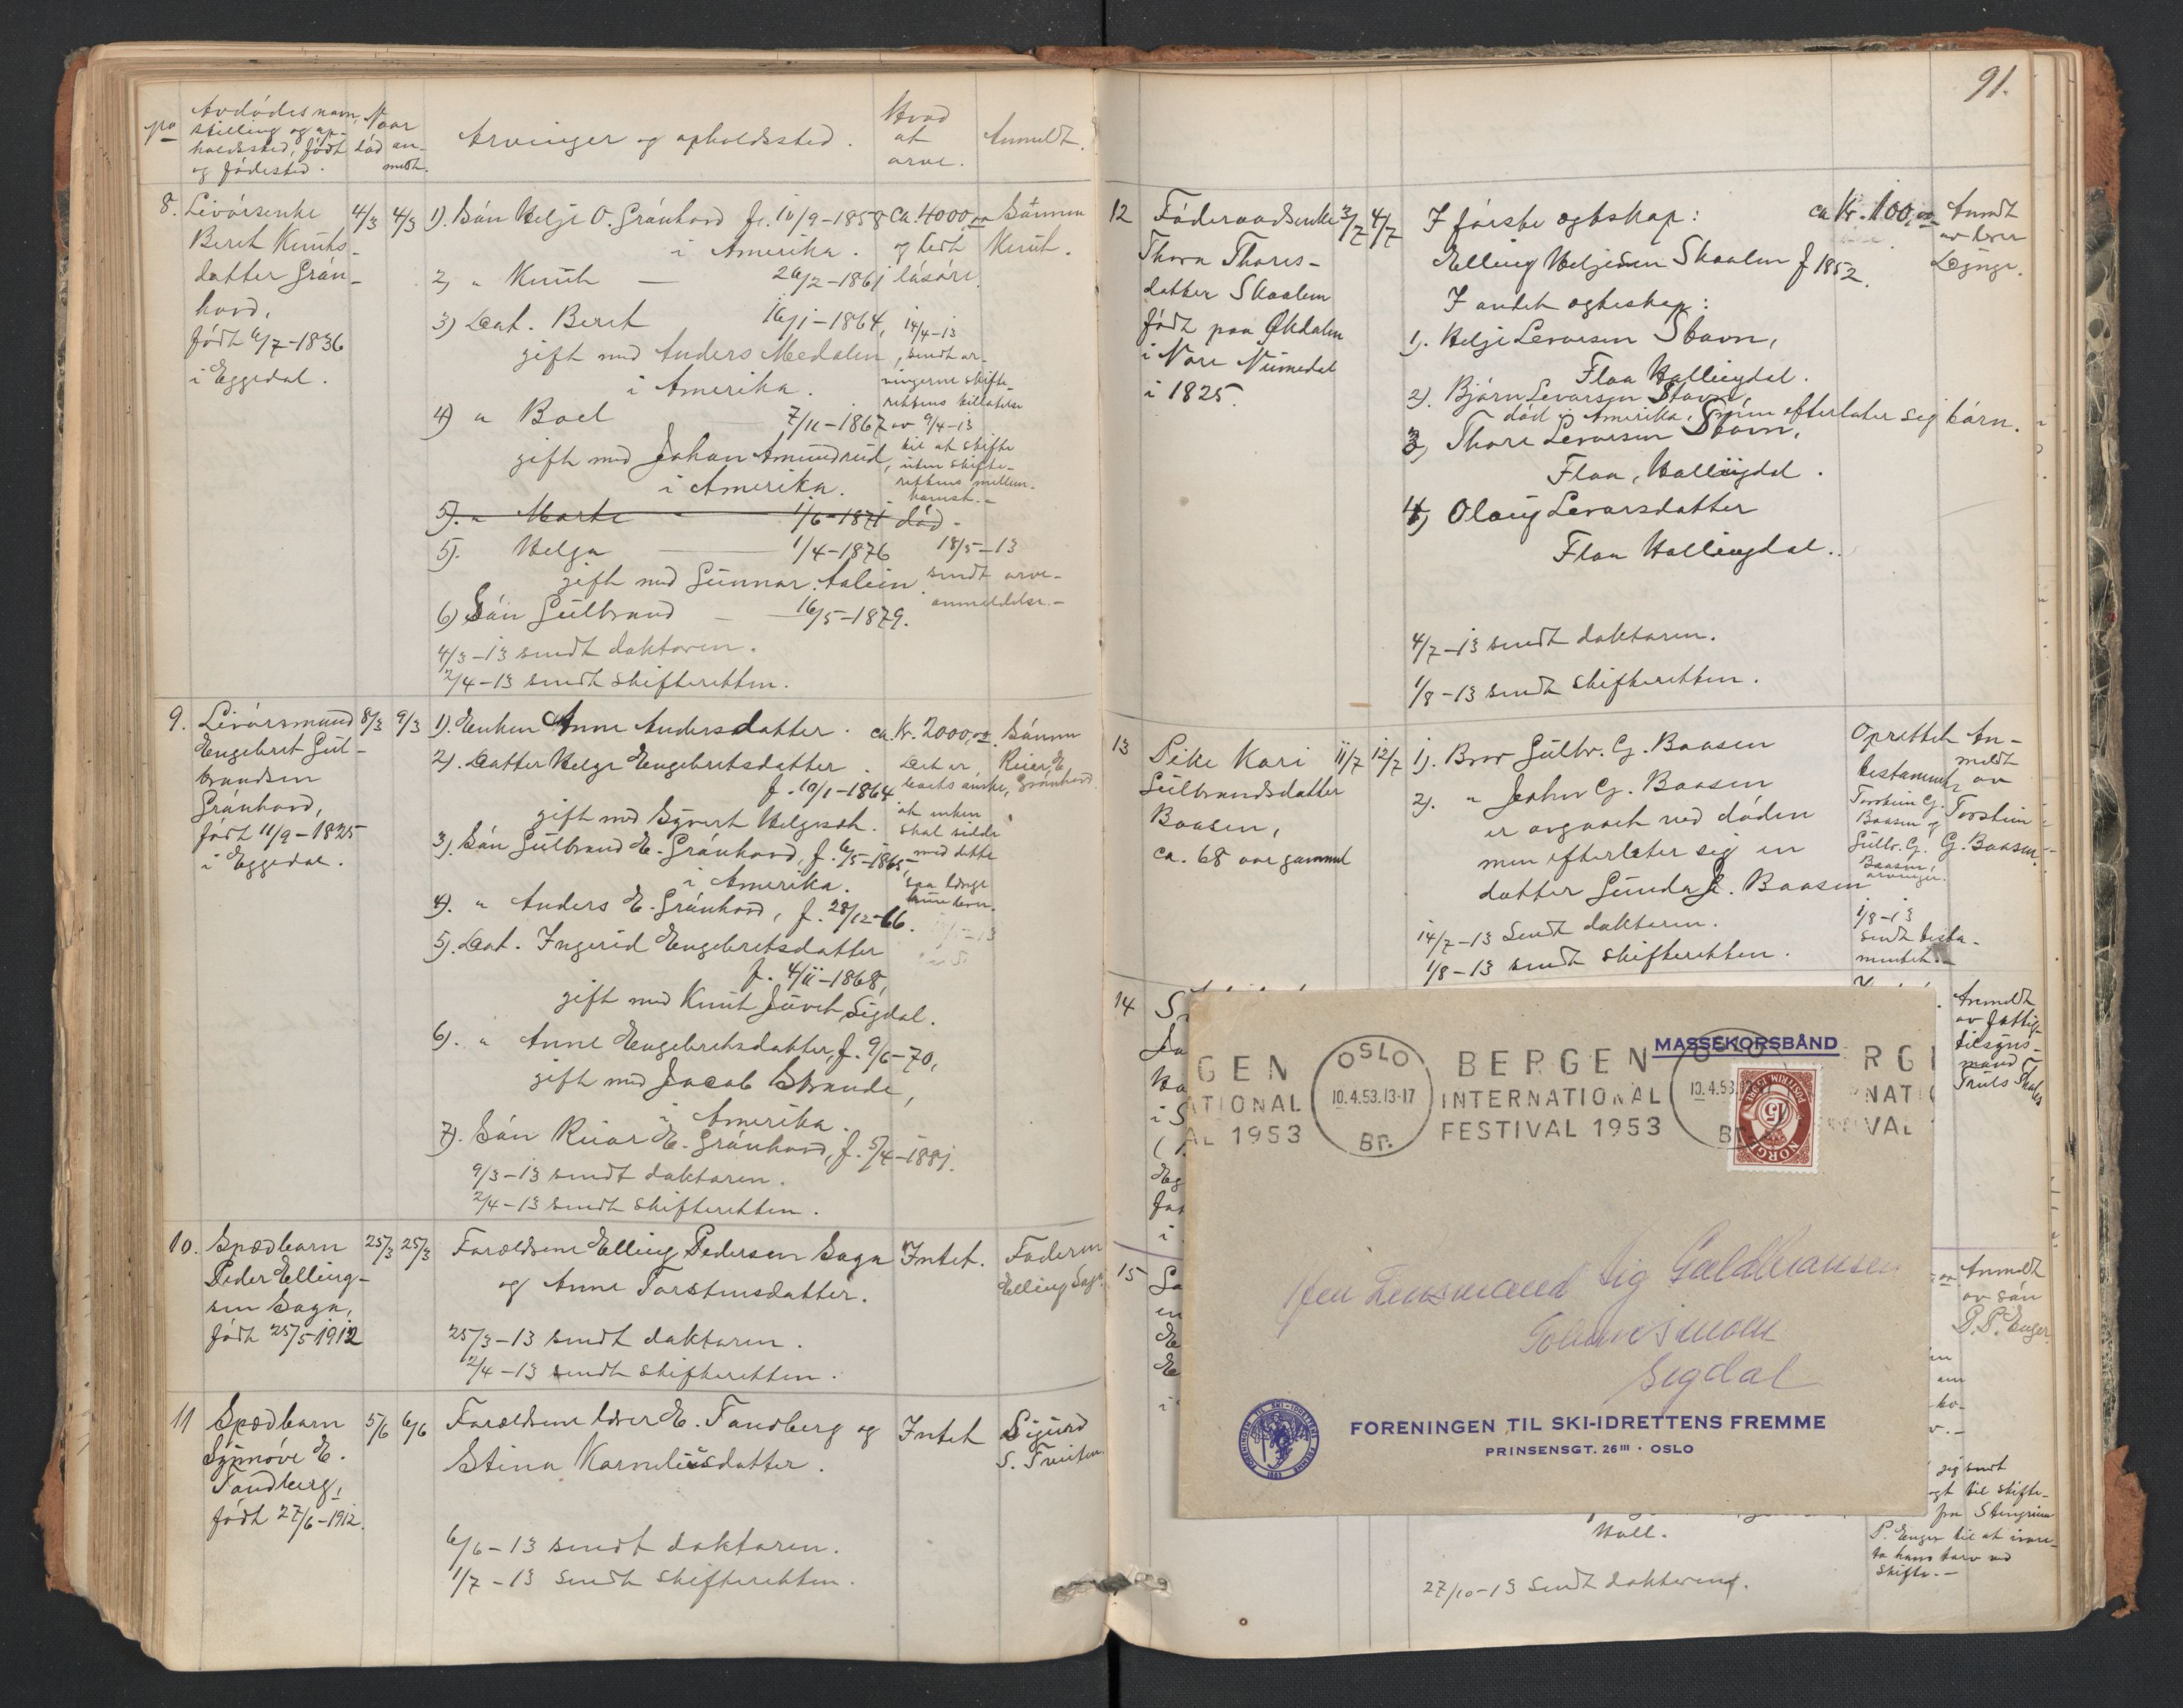 Avdödes navn,
stilling og op-
holdssted, födt
og födested.
Naar
död
an-
meldt.
Arvinger og opholdssted.
Hvad
at
arve.
Anmeldt.
8. Livörsenke
Beret Knuts-
datter Grön-
hovd,
födt 6/7-1836
i Eggedal.
4/3 4/3
1). Sön Helje O. Grönhovd fr. 10/9-1858
i Amerika.
2) " Knut — 26/2-1861
3) Dat. Beret 16/1-1864,
gift med Anders Medalen,
i Amerika.
4) " Boel 7/11-1867
gift med Johan Amundrud,
i Amerika.
5). " Marte - 1/6-1871 död.
5). Helga — 1/4-1876
gift med Gunnar
6) Sön Gulbrand — 16/5-1879.
4/3-13 sendt doktoren.
2/4-13 sendt skifteretten.
ca. 4000,00
og litt
lösöre.
14/4-13
sendt ar-
vingerne skifte-
rettens tillatelse
av 9/4-13
til at skifte
uten skifte-
rettens mellem-
komst.-
18/5-13
sendt arve-
anmeldelse.-
Sönnen
Knut.
9. Livörsmand
Engebret Gul-
brandsen
Grönhovd,
födt 11/9-1825
i Eggedal.
8/3 9/3
1). Enken Anne Andersdatter.
2). Datter Helge Engebretsdatter
f. 10/1-1864
gift med Syvert Helgeseth.
3). Sön Gulbrand E. Grönhovd, f. 6/5-1865,
i Amerika.
4). " Anders E. Grönhovd, f. 28/12-66.
5). Dat. Ingerid Engebretsdatter
f. 4/11-1868,
gift med Knut Juvet, Sigdal.
6). " Anne Engebretsdatter, f. 9/6-70,
gift med Jacob Strande,
i Amerika.
7). Sön Reiar E. Grönhovd, f. 5/4-1881.
9/3-13 sendt doktoren.
2/4-13 sendt skifteretten.
ca. kr. 2000,00.
Det er
boets önske,
at enken
skal sidde
med dette
saa længe
hun lever.
Sönnen
Reiar E.
Grönhovd.
10. Spædbarn
Peder Elling-
sen Saga,
födt 25/5 1912
25/3 25/3
Forældrene Elling Pedersen Saga
og Anne Torstensdatter.
25/3-13 sendt doktoren.
2/4-13 sendt skifteretten.
Intet.
Faderen
Elling Saga.
11 Spædbarn
Synnöve E.
Tandberg,
födt 27/6-1912.
5/6 6/6
Forældrene lærer E. Tandberg og
Stina Korneliusdatter.
6/6-13 sendt doktoren.
1/7-13 sendt skifteretten.
Intet
Sigurd
91.
12 Föderaadsenke
Thora Thores-
datter Skaalen
födt paa Økdalen
i Nore Numedal
i 1825.
3/7 4/7
I förste egteskap:
Elling Helgesen Skaalen f 1852.
I andet egteskap:
1). Helje Levorsen Stavn,
Flaa Hallingdal.
2). Björn Levorsen Stavn,
död i Amerika, men efterlater sig börn.
3) Thore Levorsen Stavn,
Flaa, Hallingdal.
4) Olaug Levorsdatter
Flaa Hallingdal.
4/7-13 sendt doktoren.
1/8-13 sendt skifteretten.
ca kr. 100,00
Anmdt
av lærer
13 Pike Kari
Gulbrandsdatter
Baasen,
ca. 68 aar gammel
11/7 12/7
1). Bror Gulbr. G. Baasen
2). " John G. Baasen
er avgaaet ved döden
men efterlater sig en
datter Gunda J. Baasen
14/7-13 Sendt doktoren.
1/8-13 sendt skifteretten.
Oprettet
testament,
Torstein G.
Baasen og
Gulbr. G.
Baasen
arvinger.
1/8-13
sendt testa-
mentet.-
An-
meldt
av
Torstein
G. Baasen.
14
Anmeldt
av fattig-
tilsyns-
mand
Truls
MASSEKORSBÅND
GEN
ATIONAL
AL 1953
OSLO
10.4.53.13-17
Br.
BERGEN
INTERNATIONAL
FESTIVAL 1953
OSLO
10.4.53
Br.
RG
NATI
VAL
NORGE
15
Herr Lensmand Sig Guldhaugen
Sigdal
FORENINGEN TIL SKI-IDRETTENS FREMME
PRINSENSGT. 26 III · OSLO
15
Anmeldt
av sön
P. P. Enger
sendt
til skifte-
fra Steingrim
P. Enger til at ivare-
ta hans tarv ved
skifte.-
Moll.
27/10-13 Sendt doktoren.